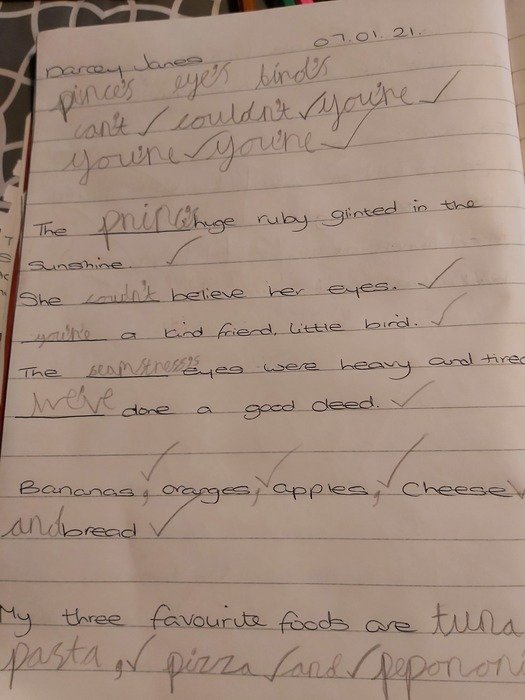 07.01.21.
Darcey Jones
pince's eye's bird's
can't ✓ couldn't ✓ you're ✓
you're ✓ you're ✓
The prince's huge ruby glinted in the
sunshine. ✓
She couldn't believe her eyes. ✓
you're a kind friend, little bird. ✓
The seamstress's eyes were heavy and tired
We've done a good deed. ✓
Bananas, oranges, apples, cheese
and bread ✓
My three favourite foods are tuna
pasta, ✓ pizza ✓ and ✓